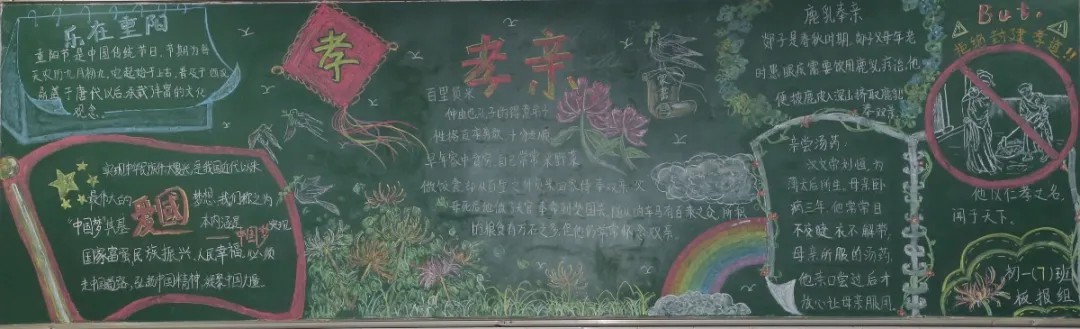 乐在重阳
重阳节是中国传统节日,节期为每
天农历九月初九,它起始于上古,普及于西汉,
鼎盛于唐代以后,承载丰富的文化
观念。
实现中华民族伟大复兴,是我国近代以来
最伟大的
爱国
梦想,我们称之为
"中国梦",其基
本内涵是
中国梦
实现
国家富强,民族振兴,人民幸福,必须
走中国道路,弘扬中国精神,凝聚中国力量。
孝
孝亲
百里负米
仲由也孔子的得意弟子
性格直率勇敢,十分孝顺
早年家中贫穷,自己常常采野菜
做饭食,却从百里之外负米回家侍奉双亲,父
母死后他做了大官,奉命到楚国去,
的粮食有万石之多,
常常怀念双亲。
鹿乳奉亲
郯子是春秋时期,
父母年老
时患眼疾,需要饮用鹿乳疗治,他
便披鹿皮入深山挤取鹿乳
奉双亲。
亲尝汤药:
汉文帝刘恒为
薄太后所生,母亲卧
病三年,他常常目
不交睫,衣不解带,
母亲所服的汤药,
他亲口尝过后才
放心让母亲服用。
But.
拒绝
孝道!!
他以仁孝之名,
闻于天下。
初一(7)班
板报组